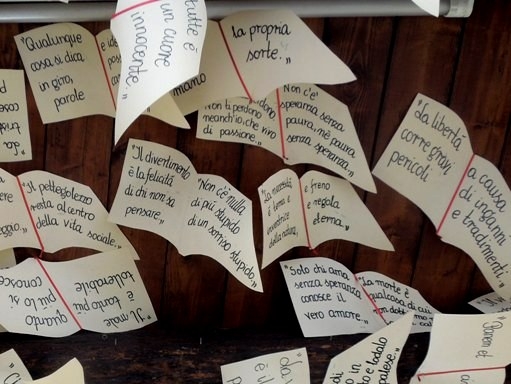 "Qualunque
cosa si dica
in giro,
parole
e id
pos
ca
tutte è
un cuore
innocente."
la propria
sorte."
manto
Non ti perdono
neanch'io, che vivo
di passione."
Non c'è
speranza senza
paura, né paura
senza speranza."
"La libertà
corre gravi
pericoli
a causa
di inganni
e tradimenti."
cose
trist
"La
"Il divertimento
è la felicità
di chi non sa
pensare."
"Non c'è nulla
di più stupido
di un sorriso stupido."
"La necessità
è tema e
inventrice
della natura,
e freno
e regola
eterna."
ere
ggio."
"Il pettegolezzo
resta al centro
della vita sociale."
"Il male
è tanto più
tollerabile
quanto
più lo si
conosce
"Solo chi ama
senza speranza
conosce il
vero amore."
"La morte è
qualcosa di cui
non
in
e lodato
palese."
di
è il
"La v
Povero
et